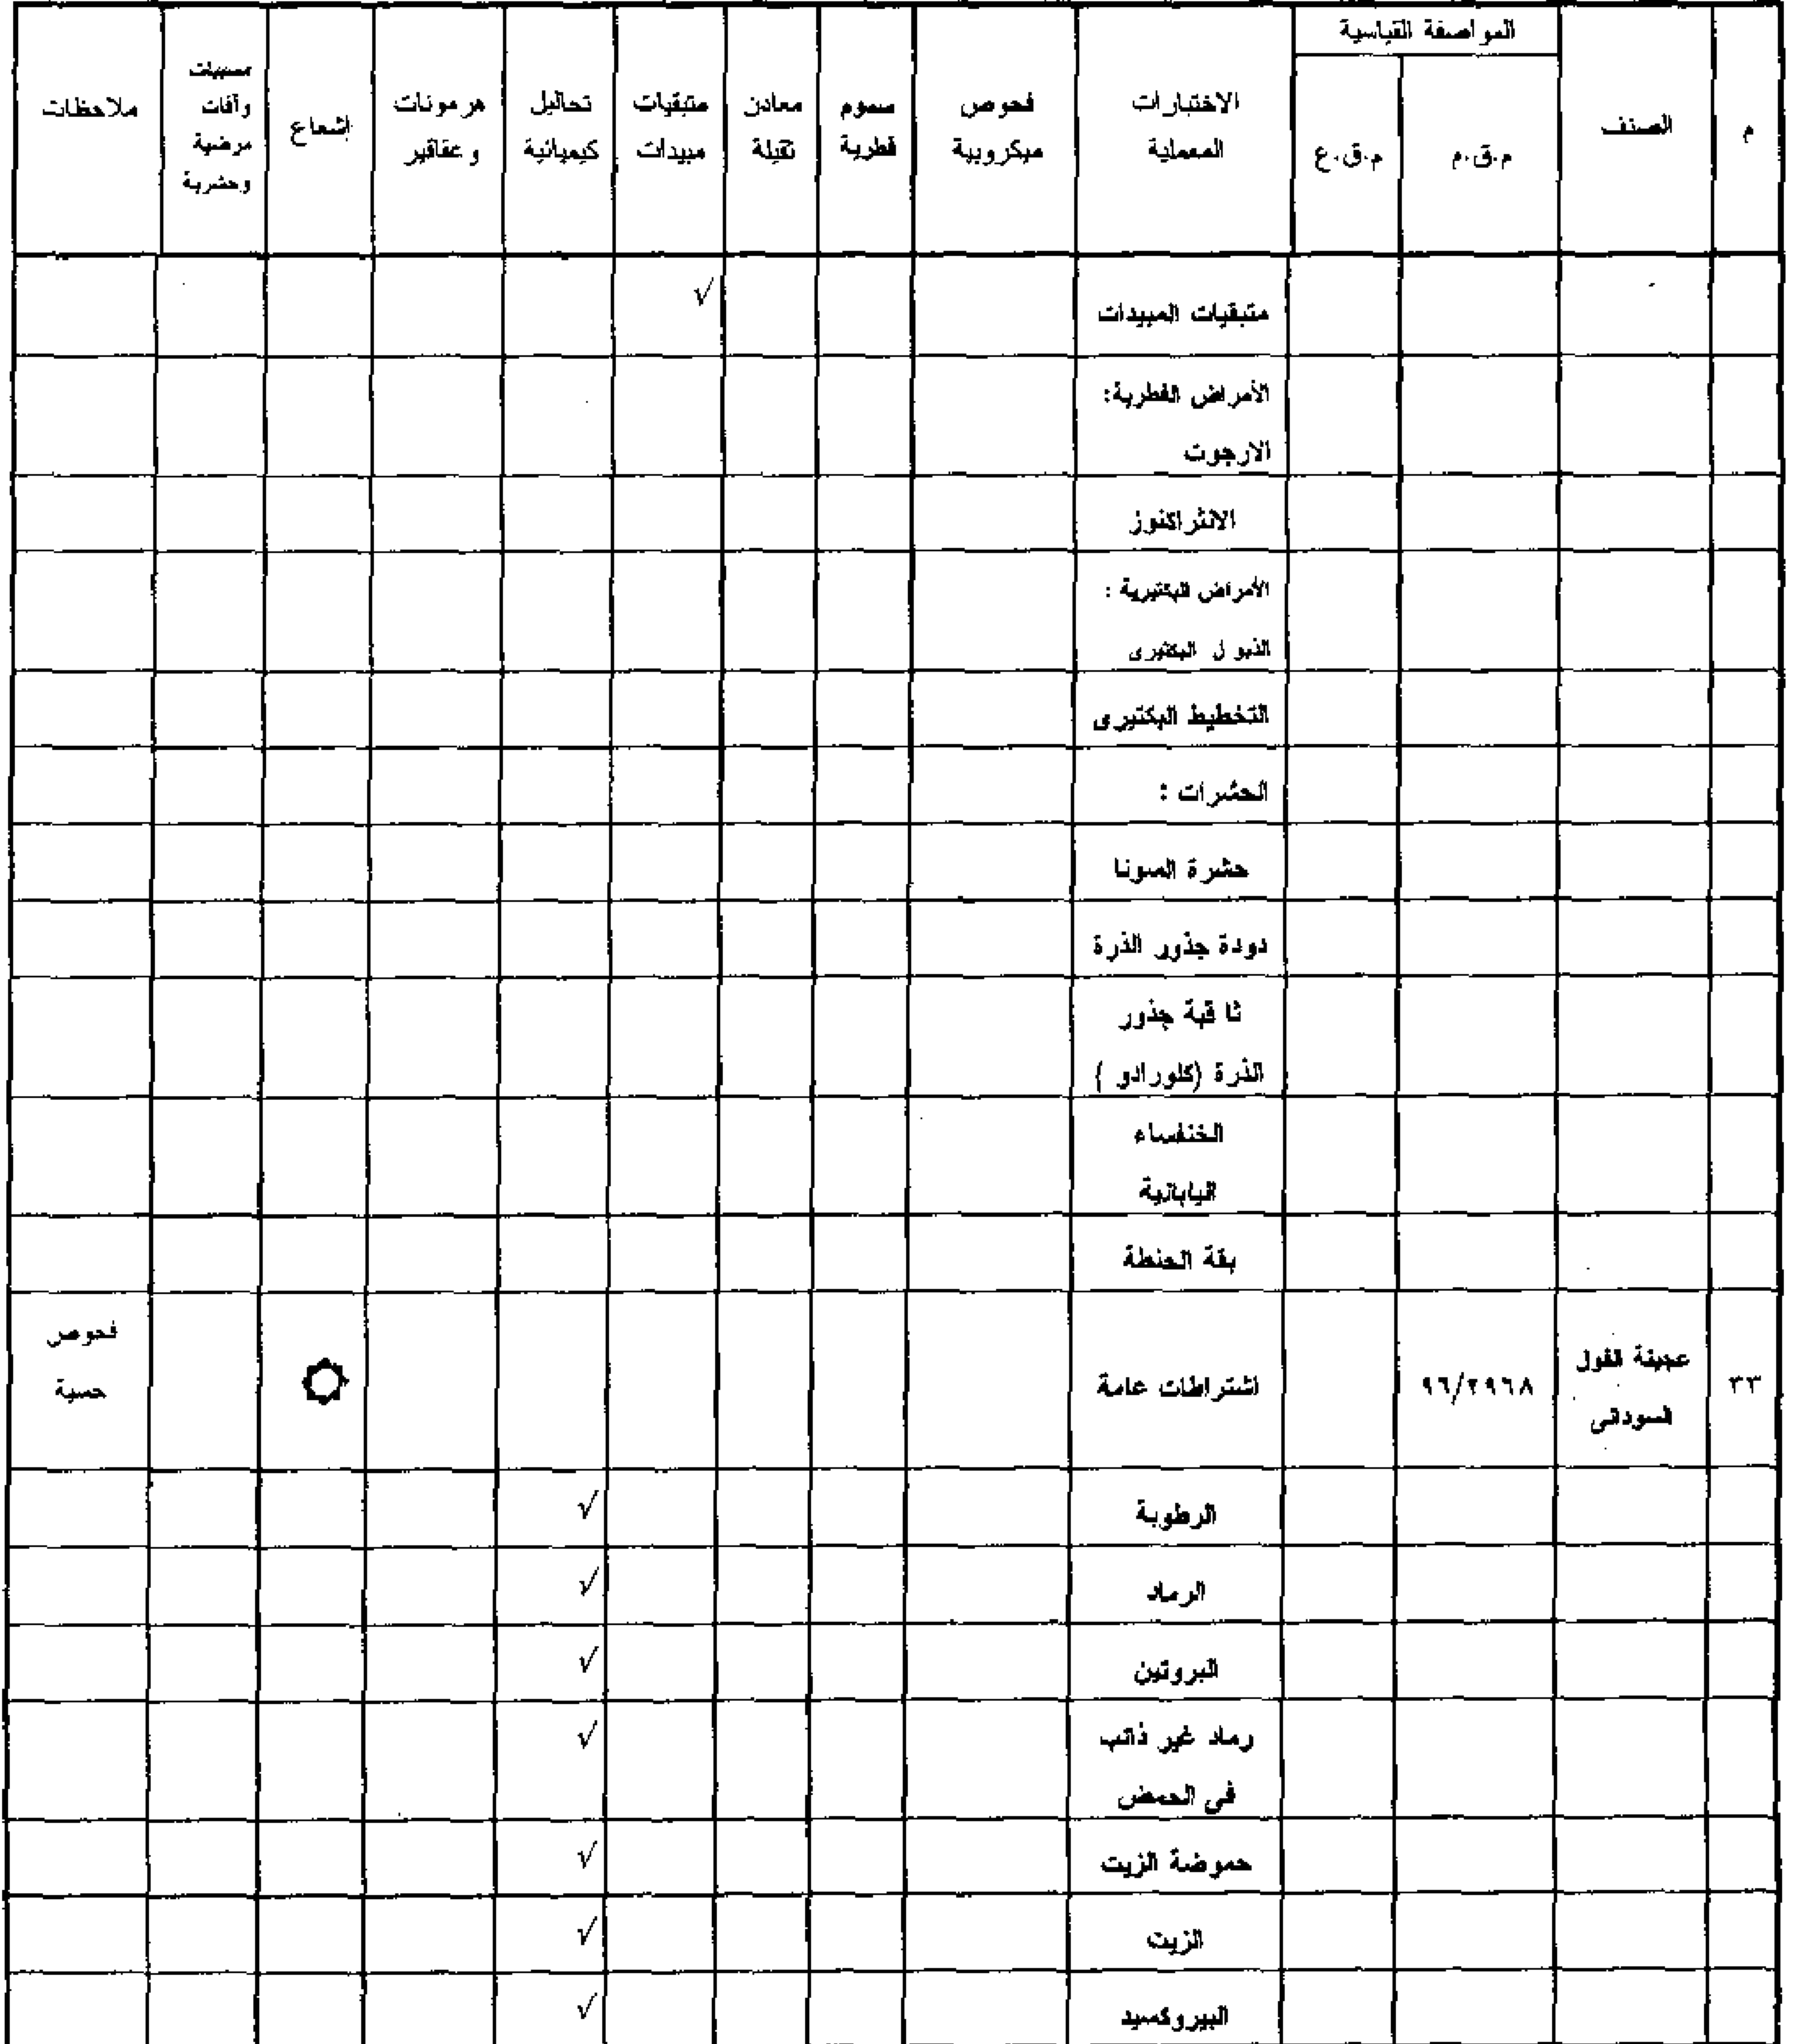 م
الصنف
المواصفة القياسية
م.ق.م
م.ق.ع
الاختبارات
المعملية
فحوص
ميكروبية
سموم
فطرية
معادن
ثقيلة
متبقيات
مبيدات
تحاليل
كيميائية
هرمونات
وعقاقير
إشعاع
مسببات
وآفات
مرضية
وحشرية
ملاحظات
متبقيات المبيدات
√
الأمراض الفطرية:
الارجوت
الانثراكنوز
الأمراض البكتيرية :
الذبول البكتيرى
التخطيط البكتيرى
الحشرات :
حشرة السونا
دودة جذور الذرة
ثاقبة جذور
الذرة (كلورادو )
الخنفساء
اليابانية
بقة الحنطة
٣٣
عجينة الفول
السودانى
٩٦/٢٩٦٨
اشتراطات عامة
فحوص
حسية
الرطوبة
√
الرماد
√
البروتين
√
رماد غير ذائب
فى الحمض
√
حموضة الزيت
√
الزيت
√
البيروكسيد
√